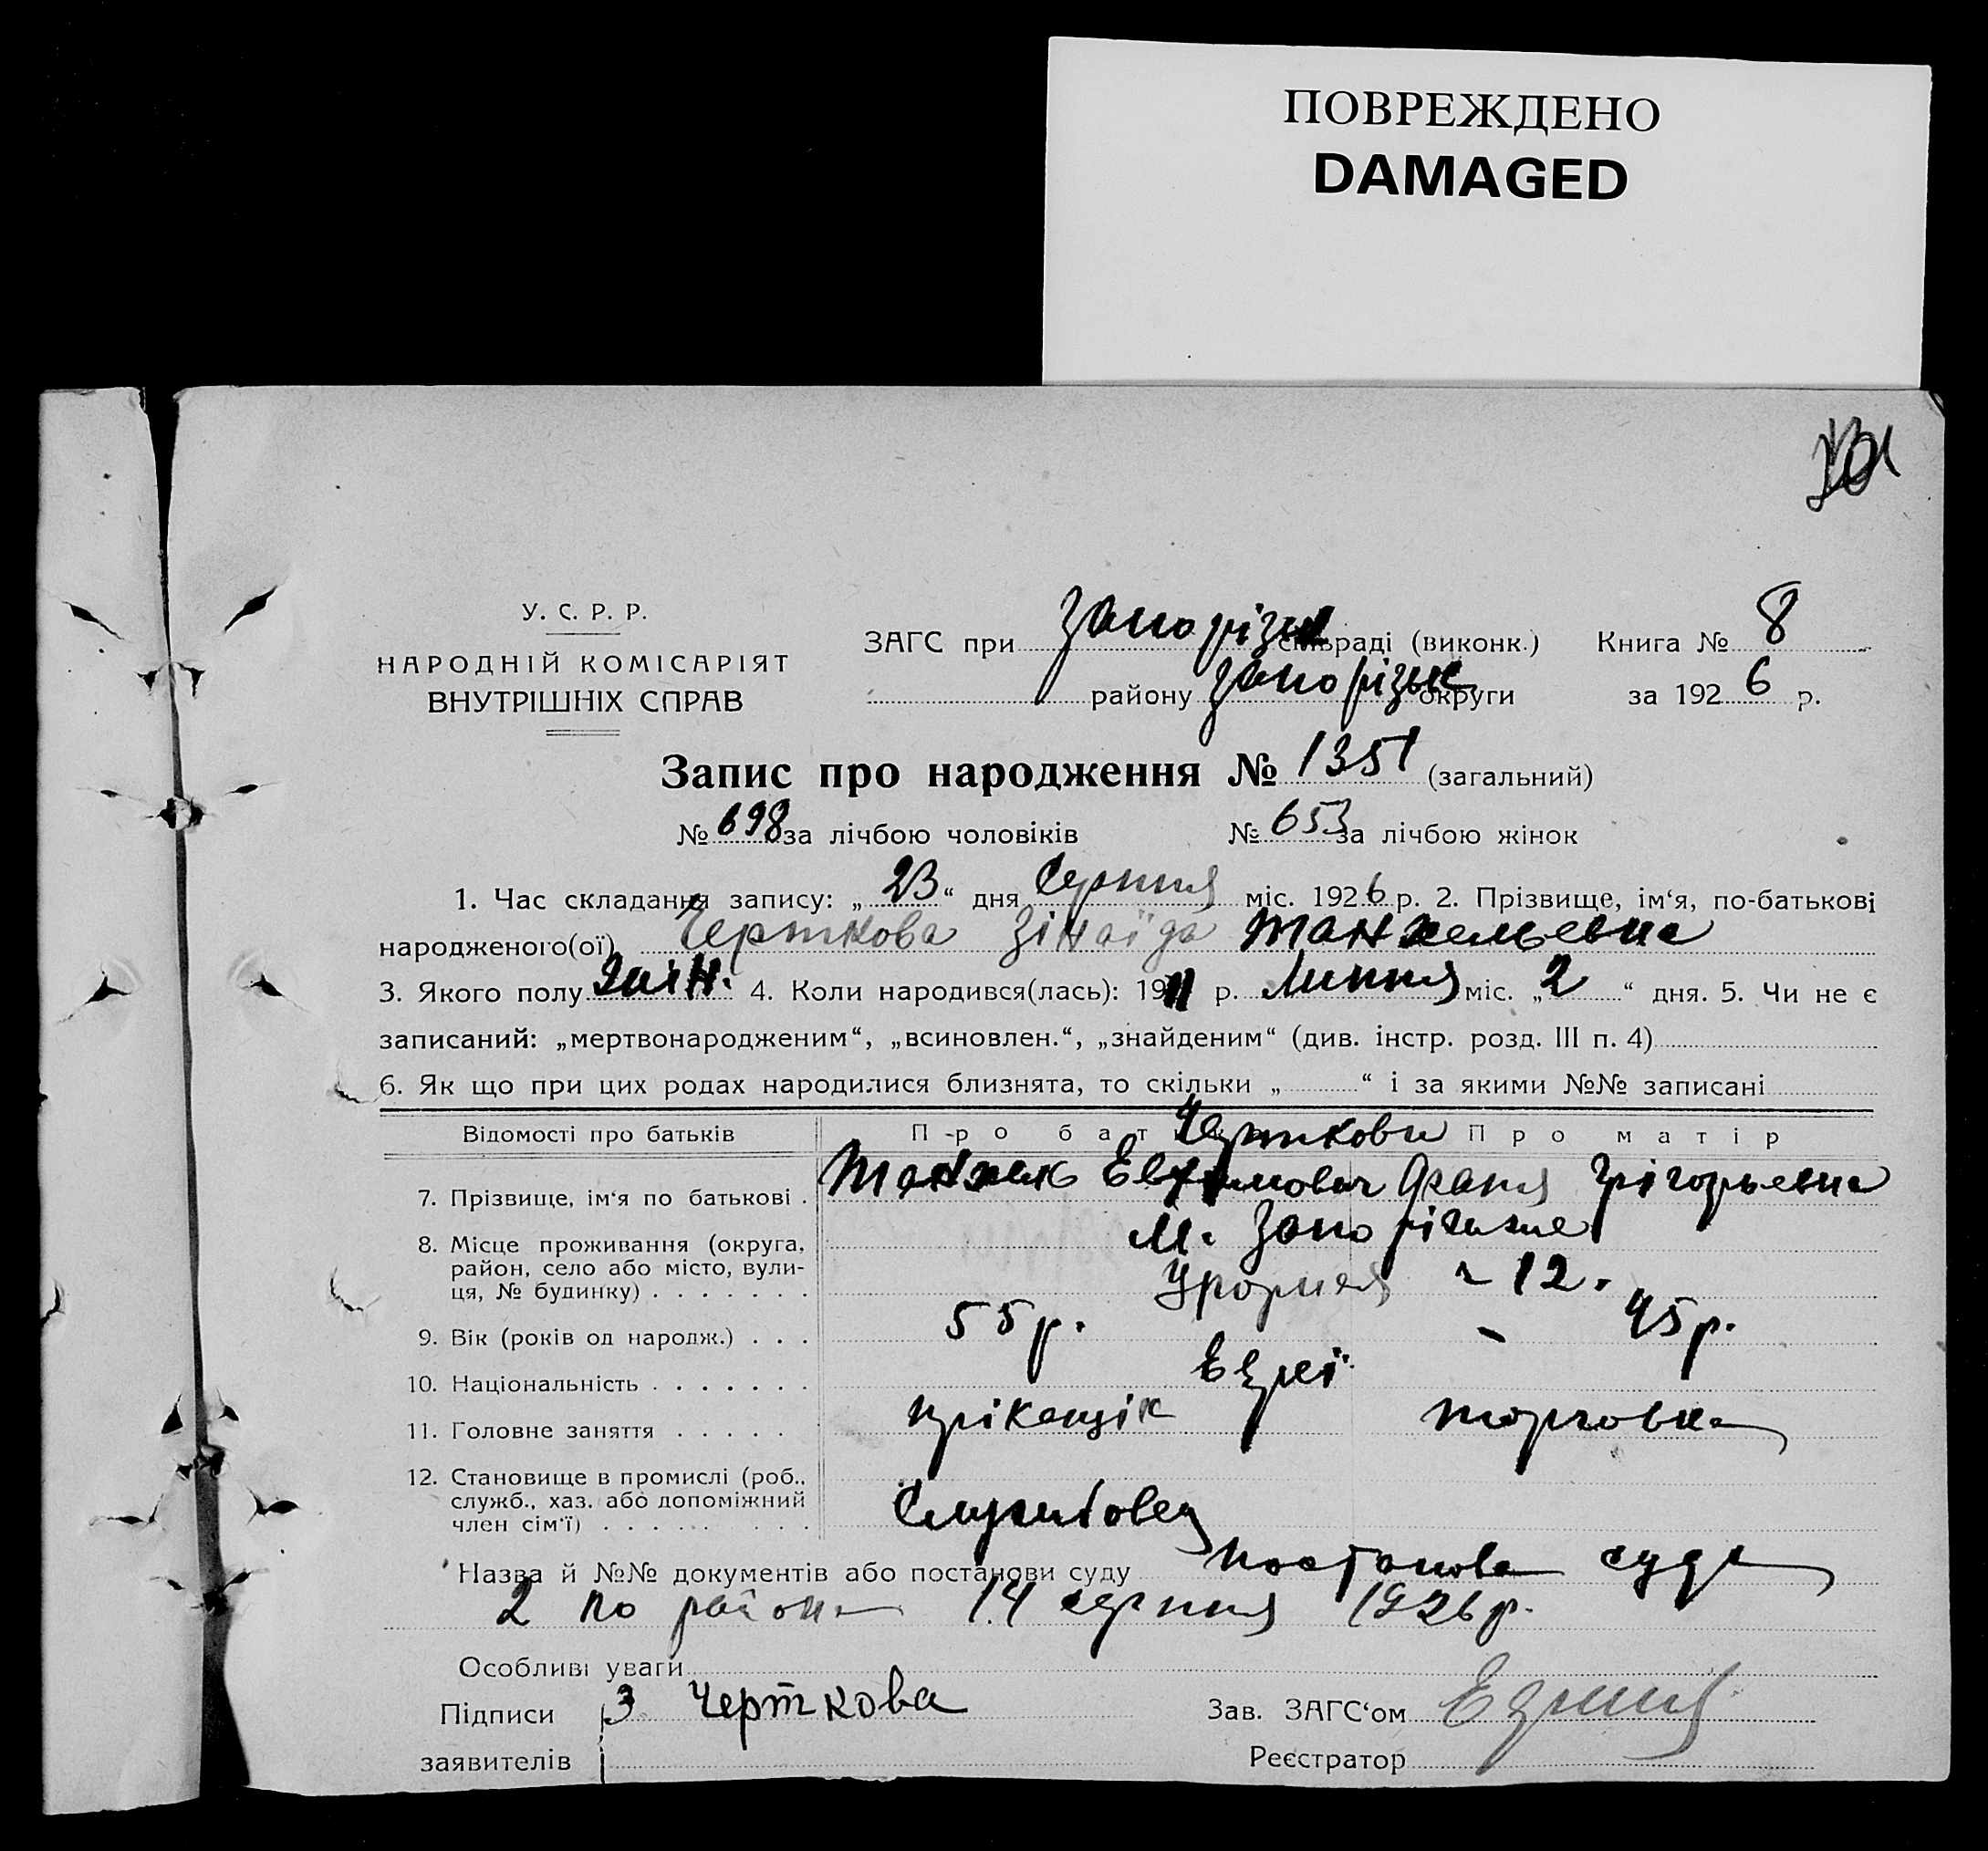 ПОВРЕЖДЕНО
DAMAGED
У. С. Р. Р.
НАРОДНІЙ КОМІСАРІЯТ
ВНУТРІШНІХ СПРАВ
ЗАГС при Запорізьк сільраді (виконк.) Книга № 8
району Запорізьк округи за 1926 р.
Запис про народження № 1351 (загальний)
№ 698 за лічбою чоловіків № 653 за лічбою жінок
1. Час складання запису: „23“ дня Серпня міс. 1926 р. 2. Прізвище, ім‘я, по-батькові
народженого(ої) Черткова Зінаїда
3. Якого полу жін. 4. Коли народився(лась): 1911 р. Липня міс. „2“ дня. 5. Чи не є
записаний: „мертвонародженим“, „всиновлен.“, „знайденим“ (див. інстр. розд. III п. 4)
6. Як що при цих родах народилися близнята, то скільки „ “ і за якими №№ записані
Відомості про батьків Про бат Черткови Про матір
7. Прізвище, ім‘я по батькові . Грігорьевна
8. Місце проживання (округа, район, село або місто, вули-ця, № будинку) . . . . . . . М. Запоріжже
12.
9. Вік (років од народж.) . . . 55 р. - 45 р.
10. Національність . . . . . . . Евреї
11. Головне заняття . . . . . прікащік торговка
12. Становище в промислі (роб., служб., хаз. або допоміжний член сім‘ї) . . . . . . . . Службовец
Назва й №№ документів або постанови суду постанова суда
2 по района 14 серпня 1926 р.
Особливі уваги
Підписи З Черткова Зав. ЗАГС‘ом
заявителів Реєстратор